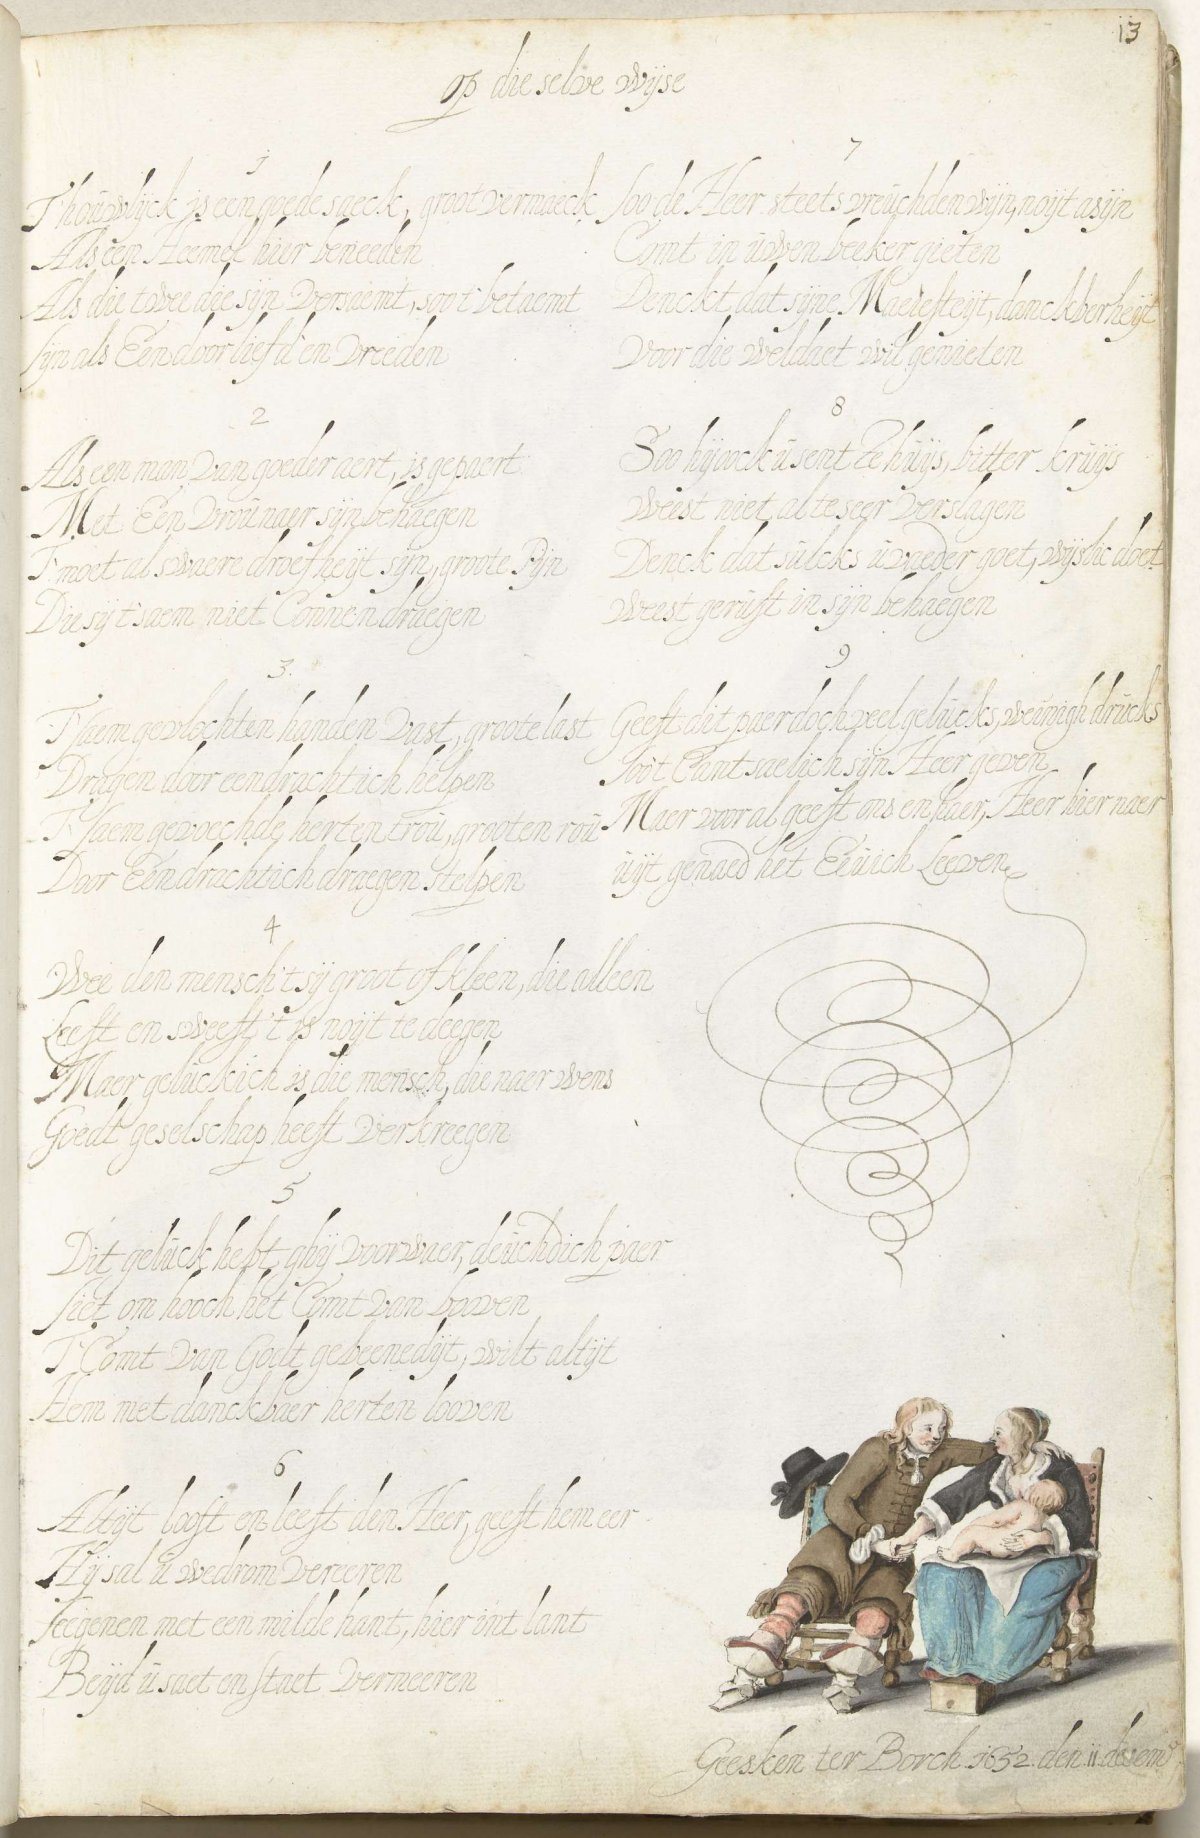 13
op die selve wijse
1
T'houwlijck is een goede saeck, groot vermaeck
Als een Heemel hier beneeden
Als die twee die sijn versaemt, soo't betaemt
sijn als Een door liefd' en vreeden
2
Als een man van goeder aert, is gepaert
Met Een vrou naer sijn behaegen
T'moet al swaere droefheijt sijn, groote Pijn
Die sij t'saem niet Connen draegen
3.
T'saem gevlochten handen vast, groote last
Dragen door eendrachtich helpen
T'saem gevoechde herten trou, grooten rou
Door Eendrachtich draegen stelpen
4
Wee den mensch t'sij groot of kleen, die alleen
Leeft en sweeft t'is noijt te deegen
Maer geluckich is die mensch, die naer wens
Goedt geselschap heeft verkreegen
5
Dit geluck hebt ghij voorwaer, deuchdich paer
siet om hooch het Comt van booven
T'Comt van Godt gebeenedijt, wilt altijt
Hem met danckbaer herten looven
6
Altijt looft en leeft den Heer, geeft hem eer
Hij sal u wedrom vereeren
seegenen met een milde hant, hier int lant
Beijd u saet en staet vermeeren
7
soo de Heer steets vreuchden wijn, noijt asijn
Comt in uwen beeker gieten
Denckt dat sijne Maeiesteijt, danckberheijt
voor die weldaet wil genieten
8
Soo hij oock u sent te huijs, bitter kruijs
weest niet al te seer verslagen
Denck dat sulcks u vaeder goet, wijslic doet
weest gerust in sijn behaegen
9
Geeft dit paer doch veel gelucks, weinigh drucks
soo't Cant saelich sijn Heer geven
Maer voor al geeft ons en haer, Heer hier naer
uijt genaed het Eeuich Leeven
Geesken ter Borch .1652. den .11. desemr